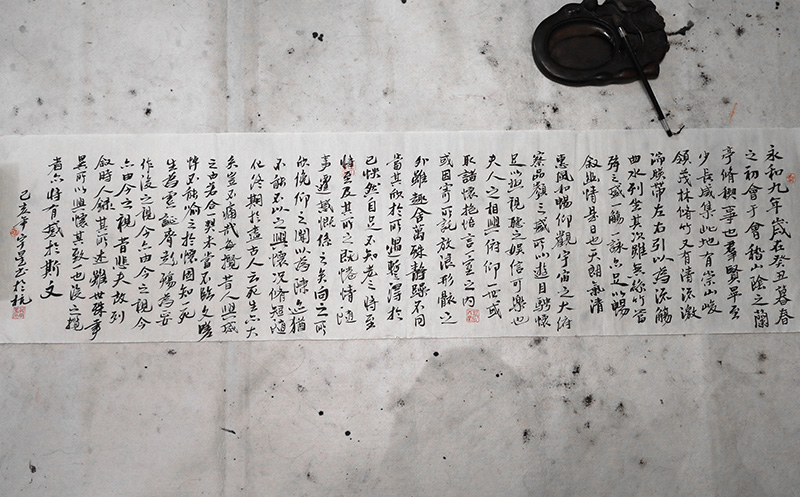 永和九年歲在癸丑暮春
之初會于會稽山陰之蘭
亭脩稧事也羣賢畢至
少長咸集此地有崇山峻
領茂林脩竹又有清流激
湍暎帶左右引以為流觴
曲水列坐其次雖無絲竹管
弦之盛一觴一詠亦足以暢
叙幽情是日也天朗氣清
惠風和暢仰觀宇宙之大俯
察品類之盛所以遊目騁懷
足以極視聽之娛信可樂也
夫人之相與俯仰一世或
取諸懷抱悟言一室之內
或因寄所託放浪形骸之
外雖趣舍萬殊靜躁不同
當其欣於所遇蹔得於
己怏然自足不知老之將至
及其所之既惓情隨
事遷感慨係之矣向之所
欣俛仰之閒以為陳迹猶
不能不以之興懷況脩短隨
化終期於盡古人云死生亦大
矣豈不痛哉每攬昔人興感
之由若合一契未嘗不臨文嗟
悼不能喻之於懷固知一死
生為虛誕齊彭殤為妄
作後之視今亦由今之視昔
悲夫故列
叙時人錄其所述雖世殊事
異所以興懷其致一也後之攬
者亦將有感於斯文
己亥年
於杭